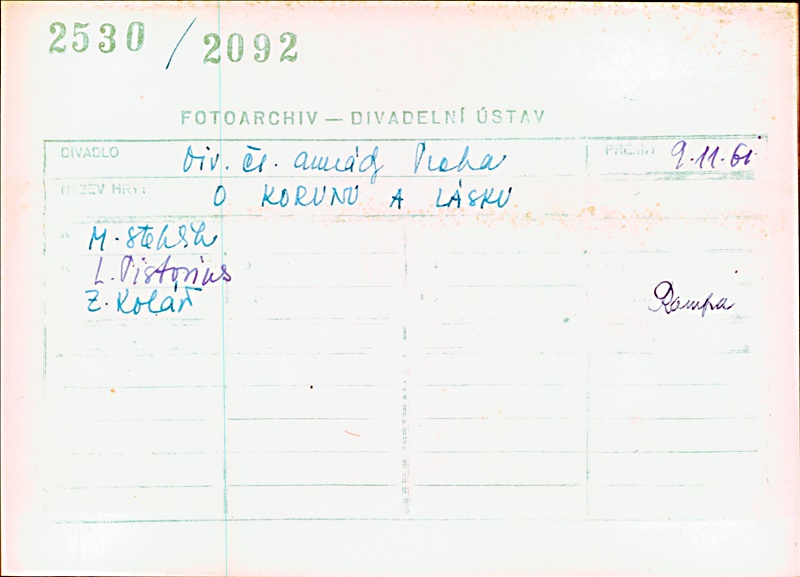 2530 / 2092
FOTOARCHIV — DIVADELNÍ ÚSTAV
DIVADLO Div. čs. armády Praha 9.11.61
NÁZEV HRY: O KORUNU A LÁSKU
M. Stehlík
L. Pistorius
Z. Kolář
Rampa